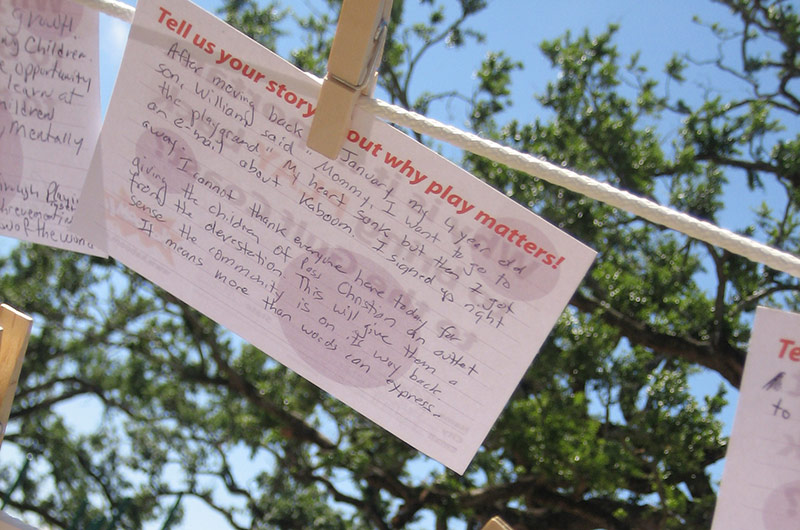 growth.
children.
opportunity
learn at
Mentally
Tell us your story out why play matters!
After moving back January, my 4 year old
son, William, said "Mommy, I want to go to
the playground" My heart sank but then I got
an e-mail about Kaboom. I signed up right
away. I cannot thank everyone here today for
giving the children of Pass Christian an outlet
from the devestation. This will give them a
sense the community is on it way back.
It means more than words can express.
Te
to